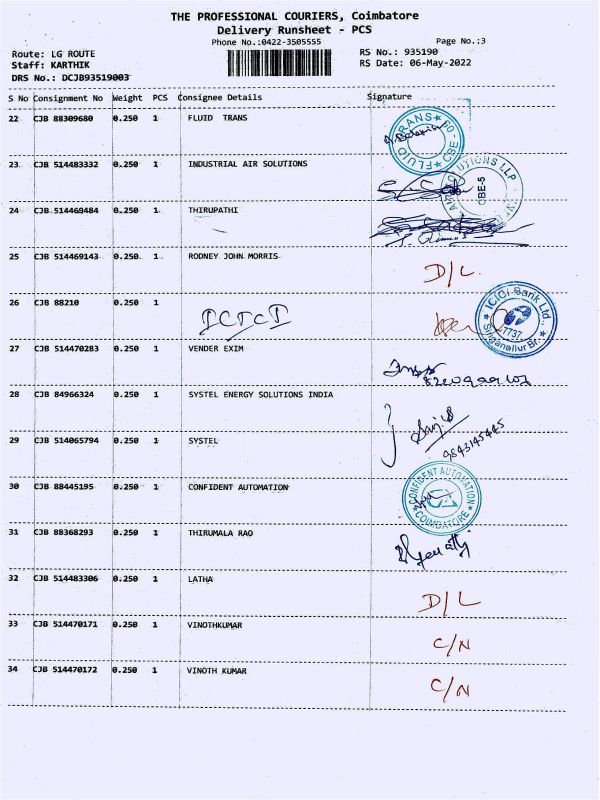 THE PROFESSIONAL COURIERS, Coimbatore
Delivery Runsheet - PCS
Phone No.:0422-3505555
Page No.:3
Route: LG ROUTE
RS No.: 935190
Staff: KARTHIK
RS Date: 06-May-2022
DRS No.: DCJB93519003
S No Consignment No Weight PCS Consignee Details Signature
22 CJB 88309680 0.250 1 FLUID TRANS
FLUID TRANS CBE-
23 CJB 514483332 0.250 1 INDUSTRIAL AIR SOLUTIONS
AIR SOLUTIONS LLP
CBE-5
24 CJB 514469484 0.250 1 THIRUPATHI
25 CJB 514469143 0.250 1 RODNEY JOHN MORRIS
D/L
26 CJB 88210 0.250 1
ICICI
ICICI Bank Ltd.,
7737
Singanallur Br.
27 CJB 514470283 0.250 1 VENDER EXIM
28 CJB 84966324 0.250 1 SYSTEL ENERGY SOLUTIONS INDIA
29 CJB 514065794 0.250 1 SYSTEL
9843145445
30 CJB 88445195 0.250 1 CONFIDENT AUTOMATION
CONFIDENT AUTOMATION
COIMBATORE
31 CJB 88368293 0.250 1 THIRUMALA RAO
32 CJB 514483306 0.250 1 LATHA
D/L
33 CJB 514470171 0.250 1 VINOTHKUMAR
C/N
34 CJB 514470172 0.250 1 VINOTH KUMAR
C/N